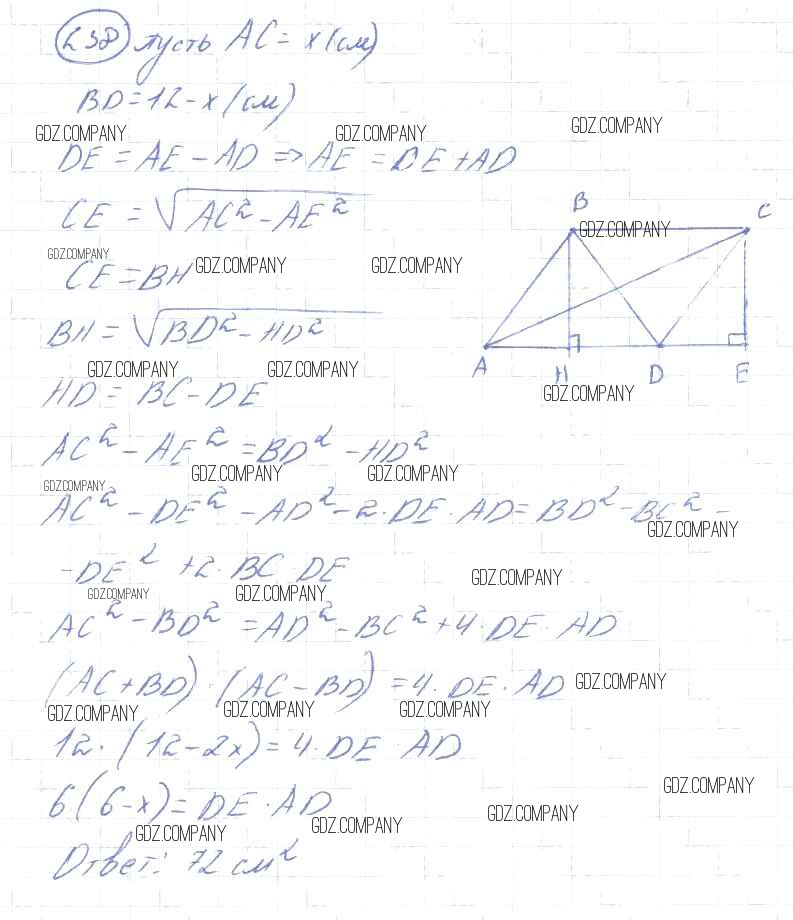 238 пусть AC = x (см)
BD = 12 - x (см)
GDZ.COMPANY GDZ.COMPANY GDZ.COMPANY
DE = AE - AD => AE = DE + AD
CE = √AC² - AE²
B
C
GDZ.COMPANY
GDZ.COMPANY
CE = BH GDZ.COMPANY GDZ.COMPANY
BH = √BD² - HD²
GDZ.COMPANY GDZ.COMPANY
A H D E
GDZ.COMPANY
HD = BC - DE
AC² - AE² = BD² - HD²
GDZ.COMPANY GDZ.COMPANY GDZ.COMPANY
AC² - DE² - AD² - 2 · DE · AD = BD² - BC² -
GDZ.COMPANY
- DE² + 2 · BC · DE
GDZ.COMPANY
GDZ.COMPANY GDZ.COMPANY
AC² - BD² = AD² - BC² + 4 · DE · AD
(AC + BD) · (AC - BD) = 4 · DE · AD GDZ.COMPANY
GDZ.COMPANY GDZ.COMPANY GDZ.COMPANY
12 · (12 - 2x) = 4 · DE · AD
GDZ.COMPANY
6 (6 - x) = DE · AD
GDZ.COMPANY GDZ.COMPANY GDZ.COMPANY
Ответ: 72 см²